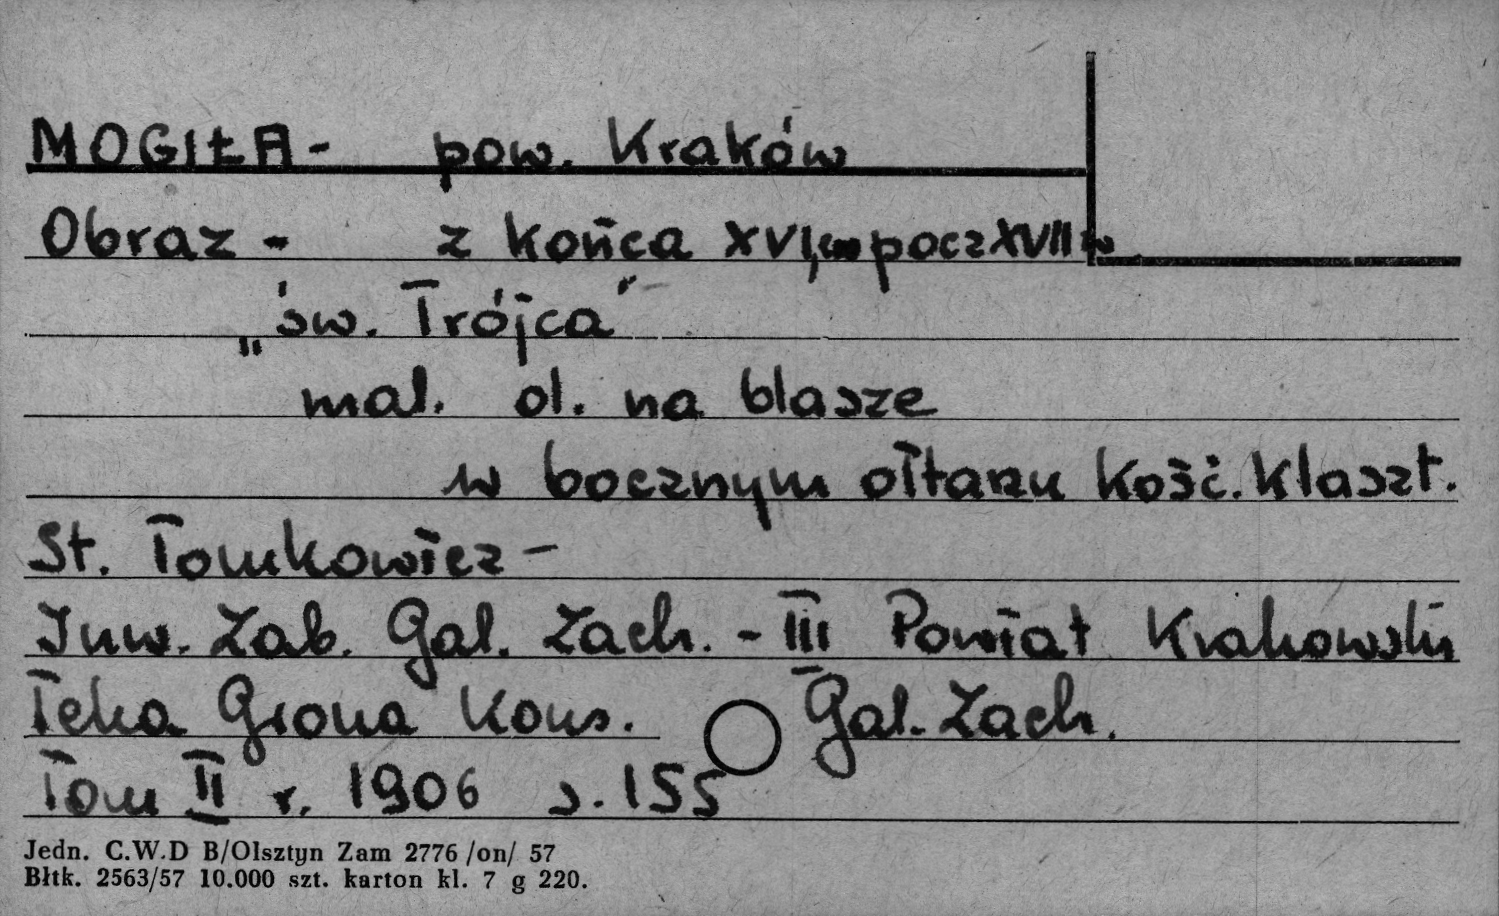 MOGIŁA - pow. Kraków
Obraz - z końca XVI, pocz XVII w
„św. Trójca"
mal. ol. na blasze
w bocznym ołtarzu Kość. Klaszt.
St. Tomkowicz -
Inw. Zab. Gal. Zach. - III Powiat Krakowski
Teka Grona Kons. Gal. Zach.
Tom II r. 1906 s. 155
Jedn. C.W.D B/Olsztyn Zam 2776 /on/ 57
Błtk. 2563/57 10.000 szt. karton kl. 7 g 220.